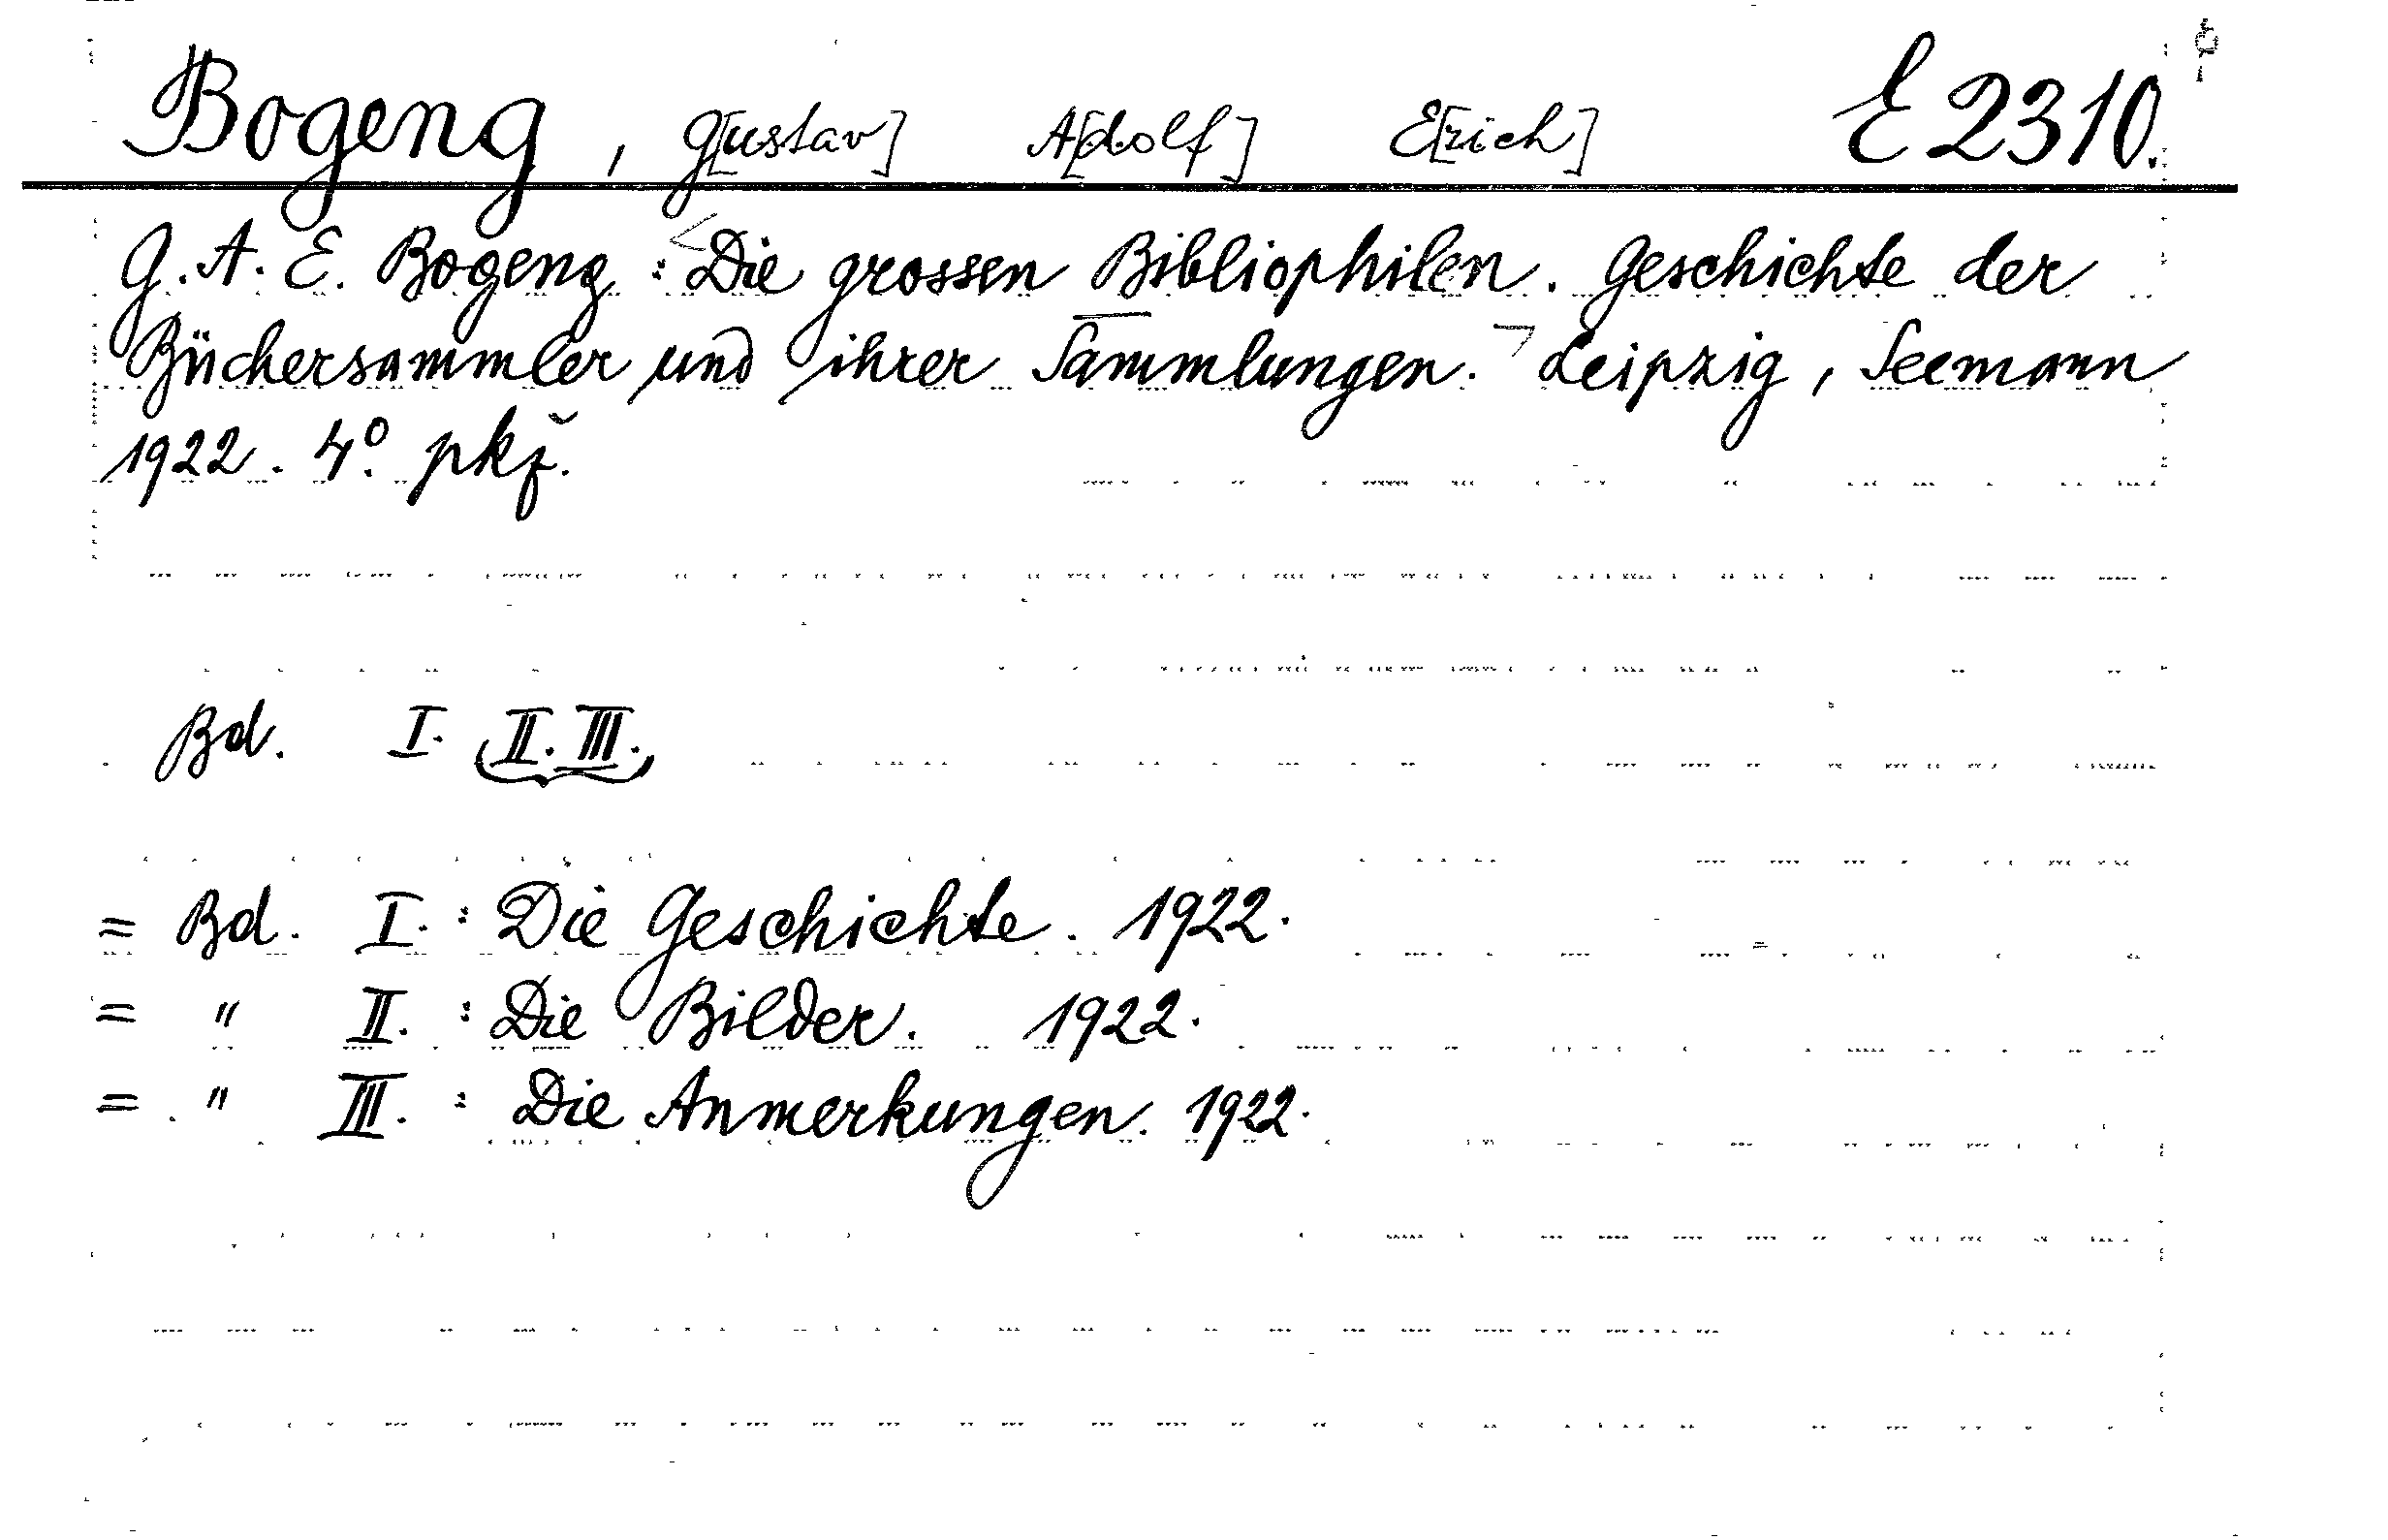 Bogeng, G[ustav] A[dolf] E[rich] E 2310.
G. A. E. Bogeng: <Die grossen Bibliophilen. Geschichte der
Büchersammler und ihrer Sammlungen.> Leipzig, Seemann
1922. 4°.
Bd. I. II. III.
= Bd. I.: Die Geschichte. 1922.
= " II.: Die Bilder. 1922.
= " III.: Die Anmerkungen. 1922.